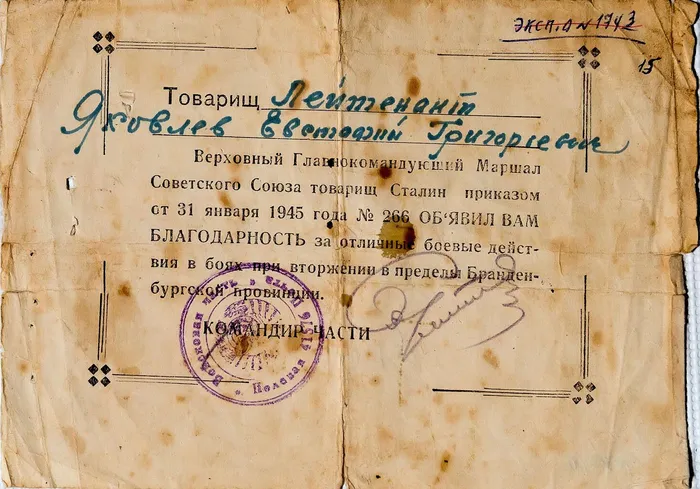 ЭКСП. А N 1743
15
Товарищ Лейтенант
Яковлев Евстафий Григорьевич
Верховный Главнокомандующий Маршал
Советского Союза товарищ Сталин приказом
от 31 января 1945 года № 266 ОБ‘ЯВИЛ ВАМ
БЛАГОДАРНОСТЬ за отличные боевые дейст-
вия в боях при вторжении в пределы Бранден-
бургской провинции.
КОМАНДИР ЧАСТИ
Войсковая часть
Полевая